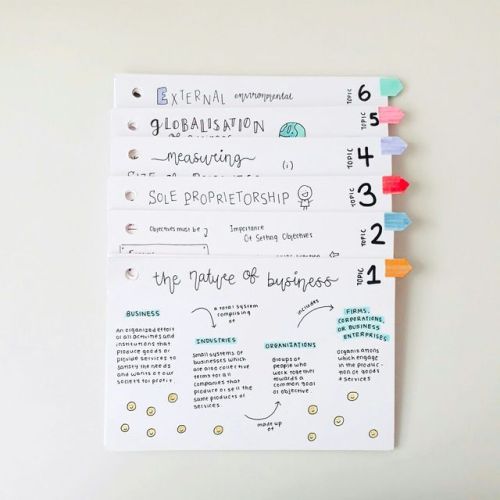 EXTERNAL environmental
TOPIC 6
GLOBALISATION
TOPIC 5
measuring
(i)
TOPIC 4
SOLE PROPRIETORSHIP
TOPIC 3
Objectives must be
Importance
Of Setting Objectives
TOPIC 2
the nature of business
TOPIC 1
BUSINESS
An organized effort
of all activities and
institutions that
produce goods or
provide services to
satisfy the needs
and wants of our
society for profit.
a total system
comprising
of
INDUSTRIES
Small systems of
businesses which
are also collective
terms for all
companies that
produce or sell the
same products or
services.
made up
of
ORGANIZATIONS
Groups of
people who
work together
towards a
common goal
or objective.
includes
FIRMS,
CORPORATIONS,
OR BUSINESS
ENTERPRISES
Organizations
which engage
in the produc-
tion of goods
& services